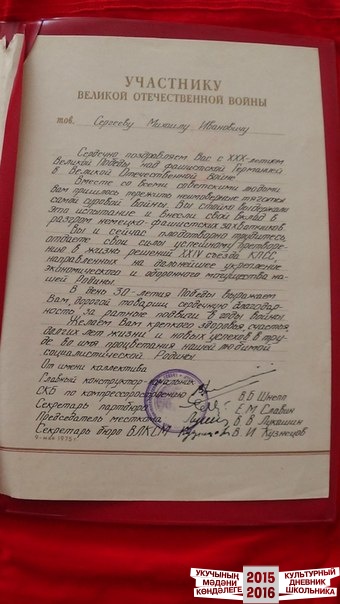 УЧАСТНИКУ
ВЕЛИКОЙ ОТЕЧЕСТВЕННОЙ ВОЙНЫ
тов. Сергееву Михаилу Ивановичу
Сердечно поздравляем Вас с XXX-летием
Великой Победы над фашистской Германией
в Великой Отечественной Войне
Вместе со всеми советскими людьми
Вам пришлось пережить неимоверные тяготы
самой суровой войны. Вы стойко выдержали
это испытание и внесли свой вклад в
разгром немецко-фашистских захватчиков
Вы и сейчас плодотворно трудитесь,
отдаете свои силы успешному претворе-
нию в жизнь решений XXIV съезда КПСС,
направленных на дальнейшее укрепление
экономического и оборонного могущества на-
шей Родины.
В день 30-летия Победы выражаем
Вам, дорогой товарищ, сердечную благодар-
ность за ратные подвиги в годы войны.
Желаем Вам крепкого здоровья, счастья
долгих лет жизни и новых успехов в тру-
де во имя процветания нашей любимой
социалистической Родины.
От имени коллектива
Главный конструктор-начальник
СКБ по компрессоростроению В.Б Шнепп
Секретарь партбюро Е М Славин
Председатель месткома В В Лукашин
Секретарь бюро ВЛКСМ В. И Кузнецов
9 - мая 1975 г
УКУЧЫНЫҢ
МӘДӘНИ
КӨНДӘЛЕГЕ
2015
2016
КУЛЬТУРНЫЙ
ДНЕВНИК
ШКОЛЬНИКА